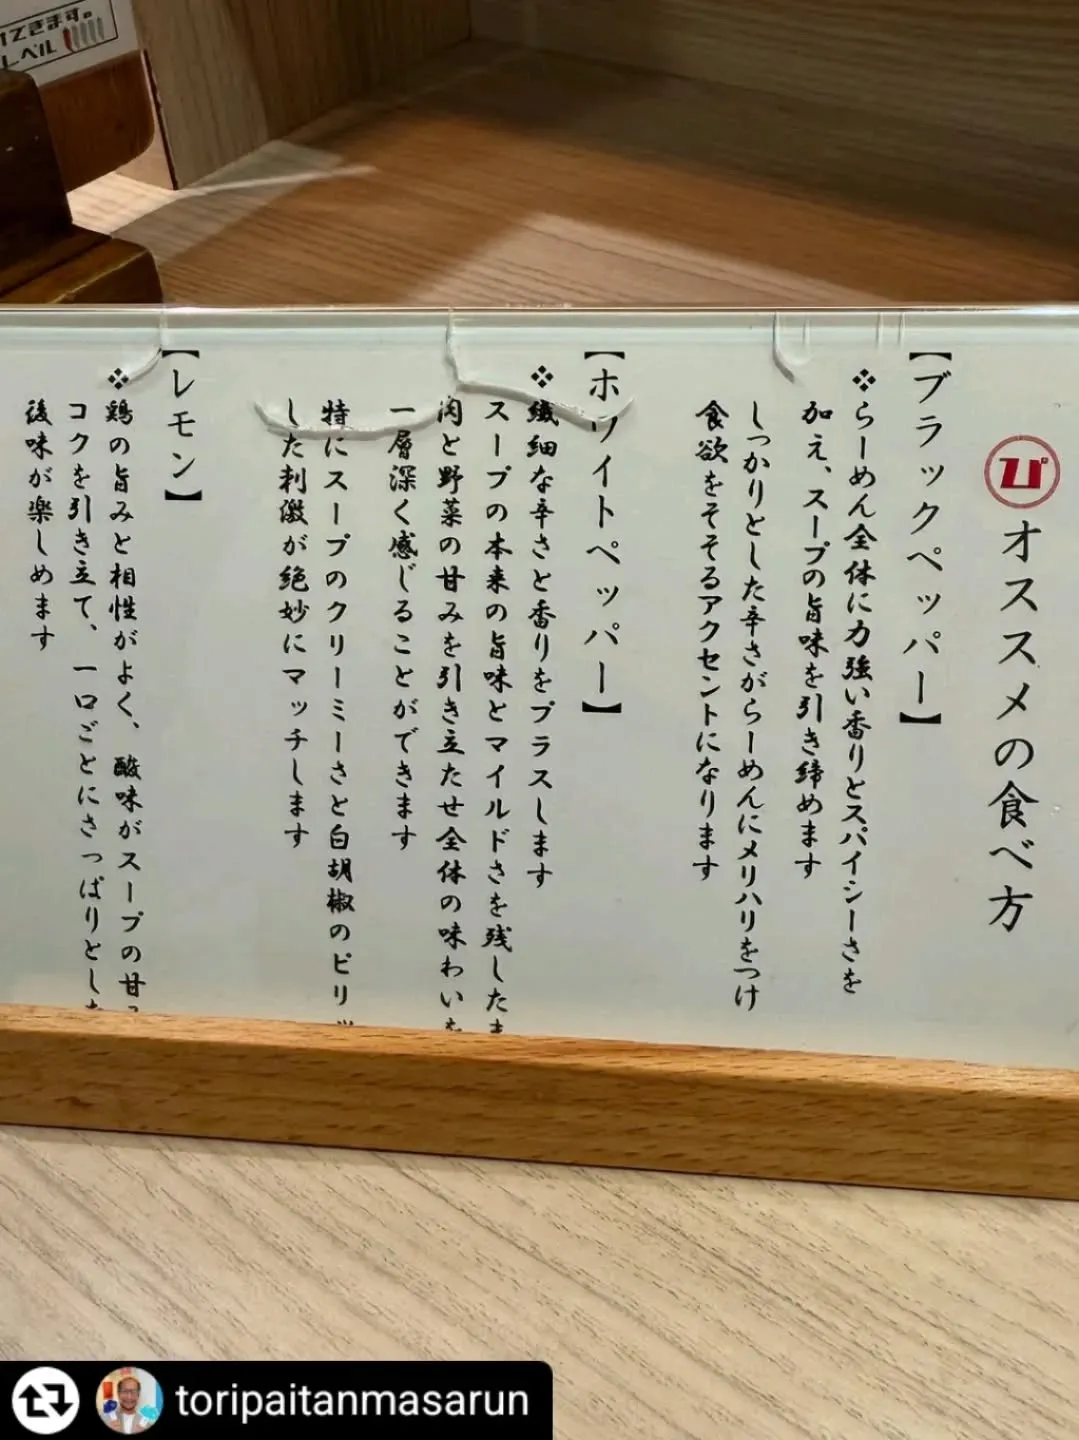 オススメの食べ方
【ブラックペッパー】
❖らーめん全体に力強い香りとスパイシーさを
加え、スープの旨味を引き締めます
しっかりとした辛さがらーめんにメリハリをつけ
食欲をそそるアクセントになります
【ホワイトペッパー】
❖繊細な辛さと香りをプラスします
スープの本来の旨味とマイルドさを残したま
肉と野菜の甘みを引き立たせ全体の味わいを
一層深く感じることができます
特にスープのクリーミーさと白胡椒のピリッ
した刺激が絶妙にマッチします
【レモン】
❖鶏の旨みと相性がよく、酸味がスープの甘
コクを引き立て、一口ごとにさっぱりとした
後味が楽しめます
できます。
レベル
ぴ
toripaitanmasarun